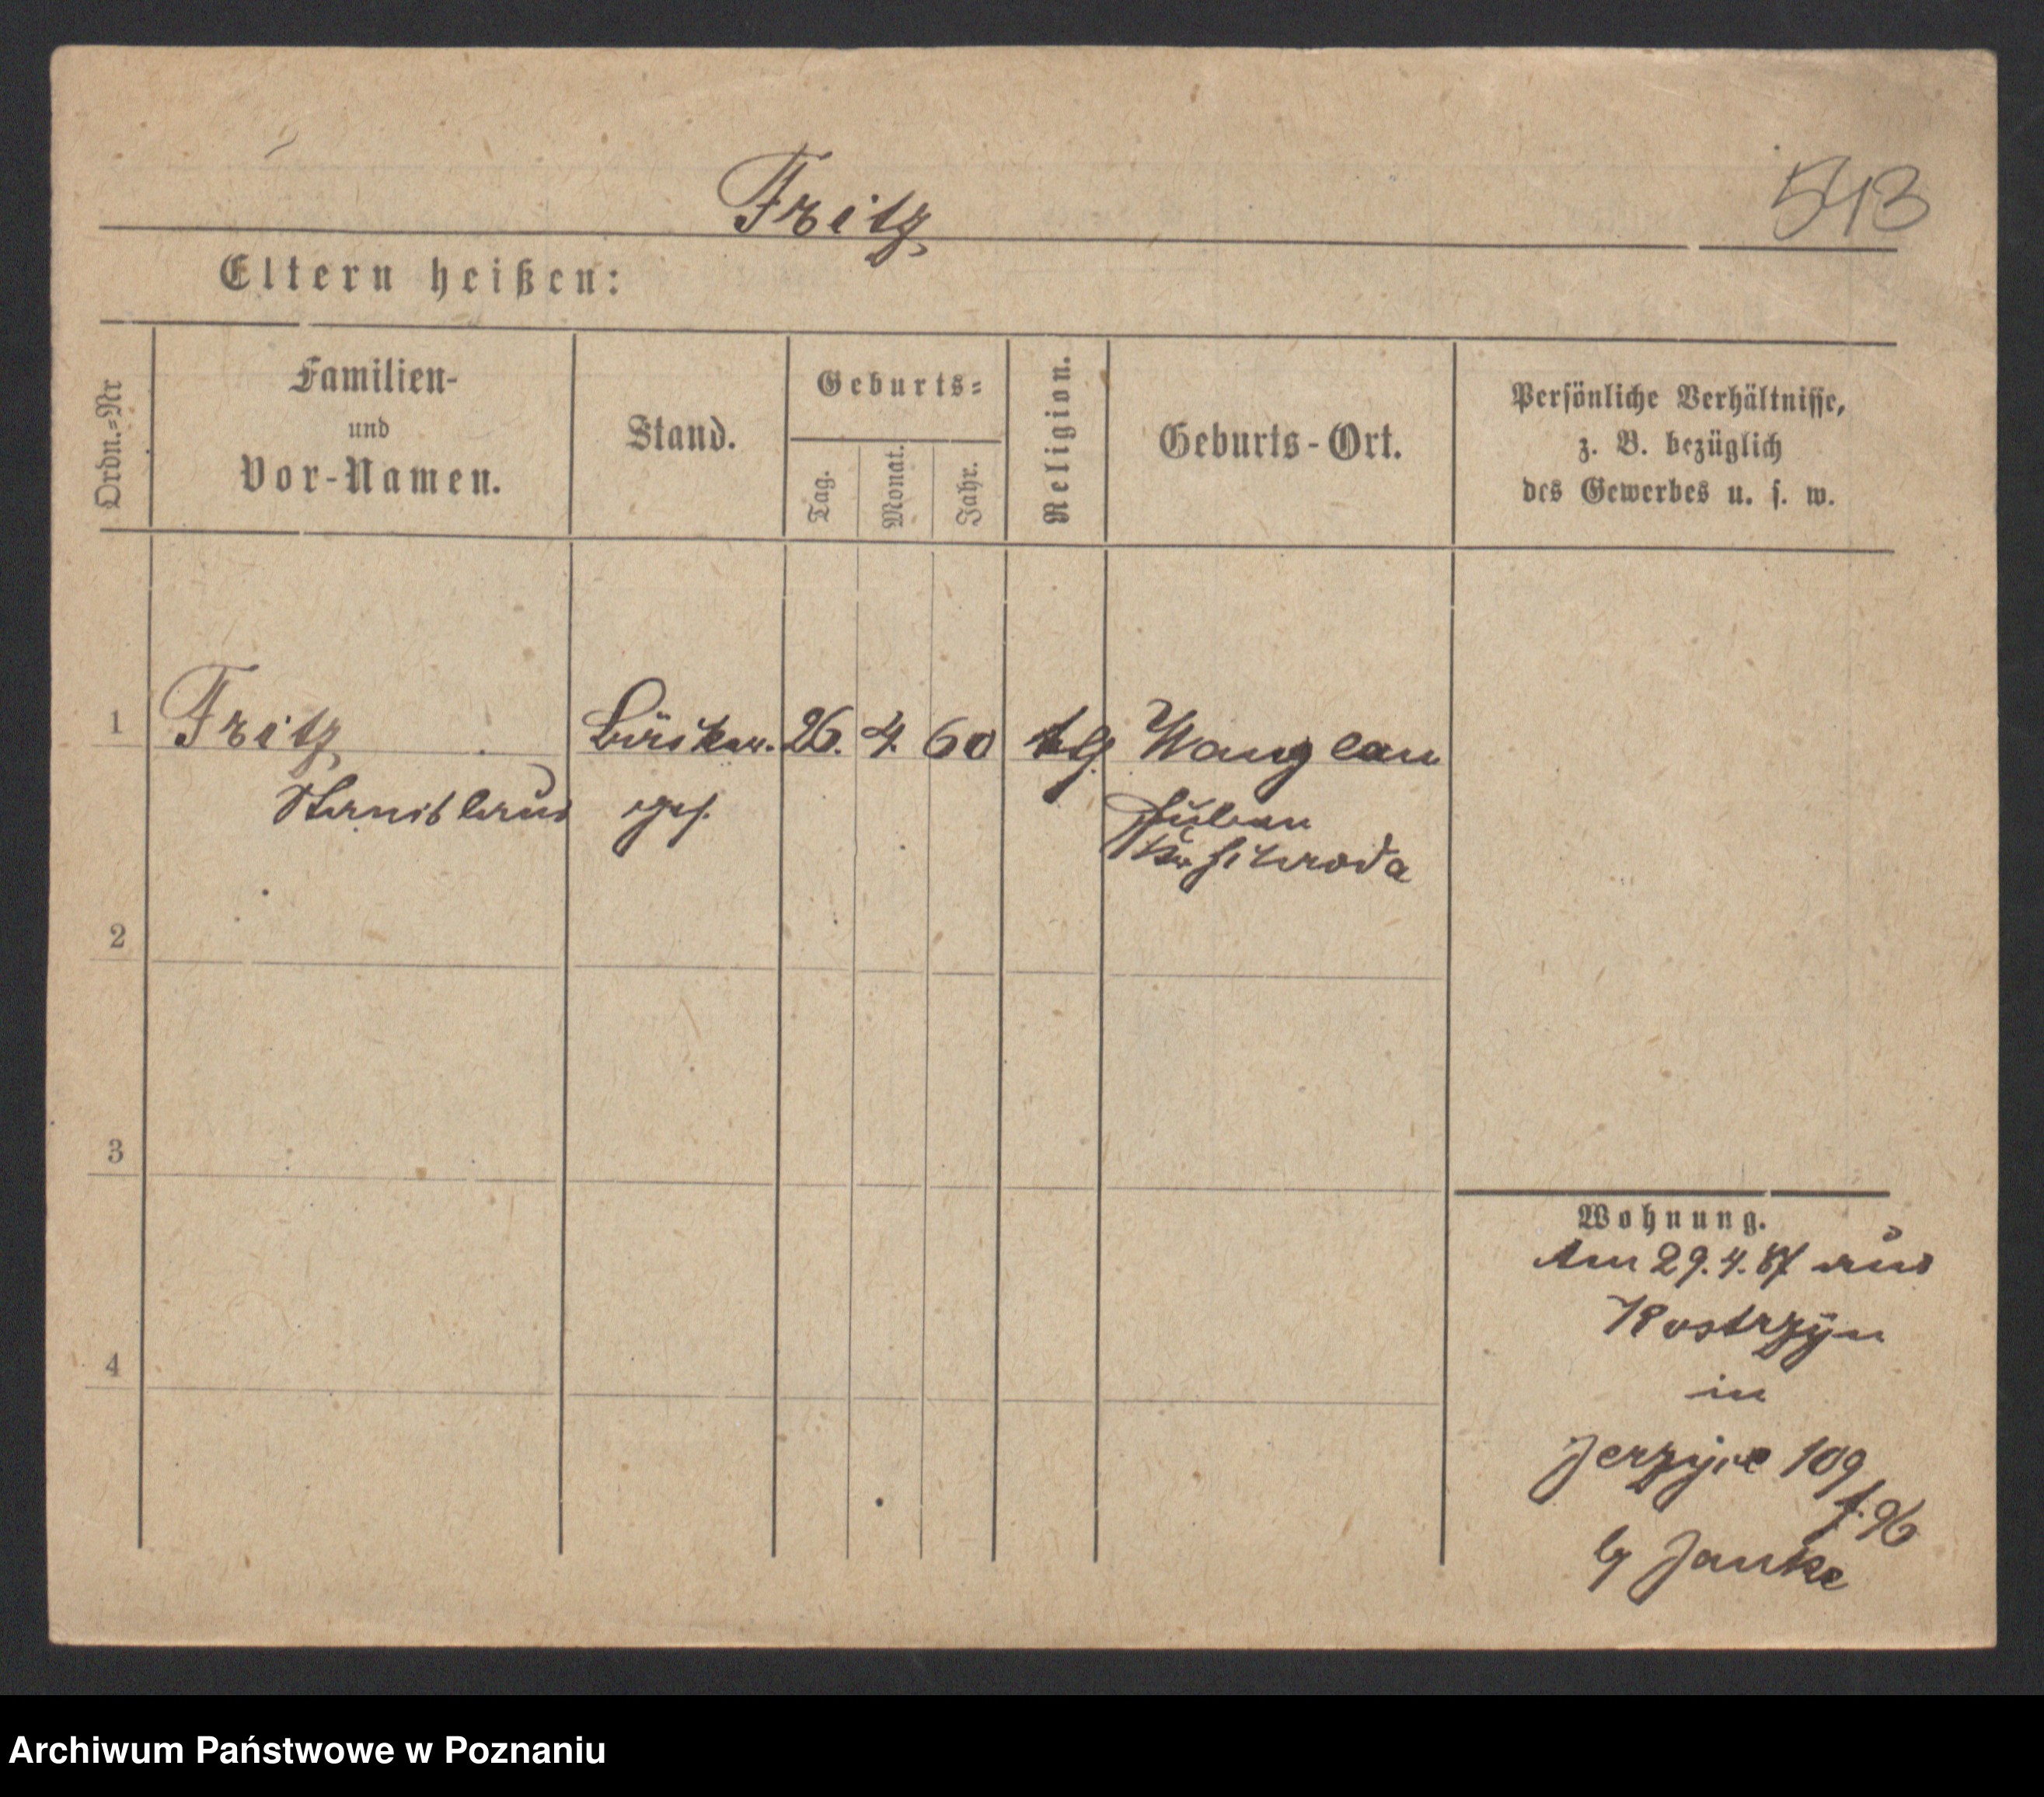 Fritz
543
Eltern heißen:
Ordn.-Nr
Familien-
und
Vor-Namen.
Stand.
Geburts-
Tag.
Monat.
Jahr.
Religion.
Geburts-Ort.
Persönliche Verhältnisse,
z. B. bezüglich
des Gewerbes u. s. w.
1 Fritz 26. 4. 60
Stanislaus ges.
Schroda
2
3
4
Wohnung.
Am 29.4.87 aus
Kostrzyn
in
Jerzyce 109
b/ Janke
Archiwum Państwowe w Poznaniu